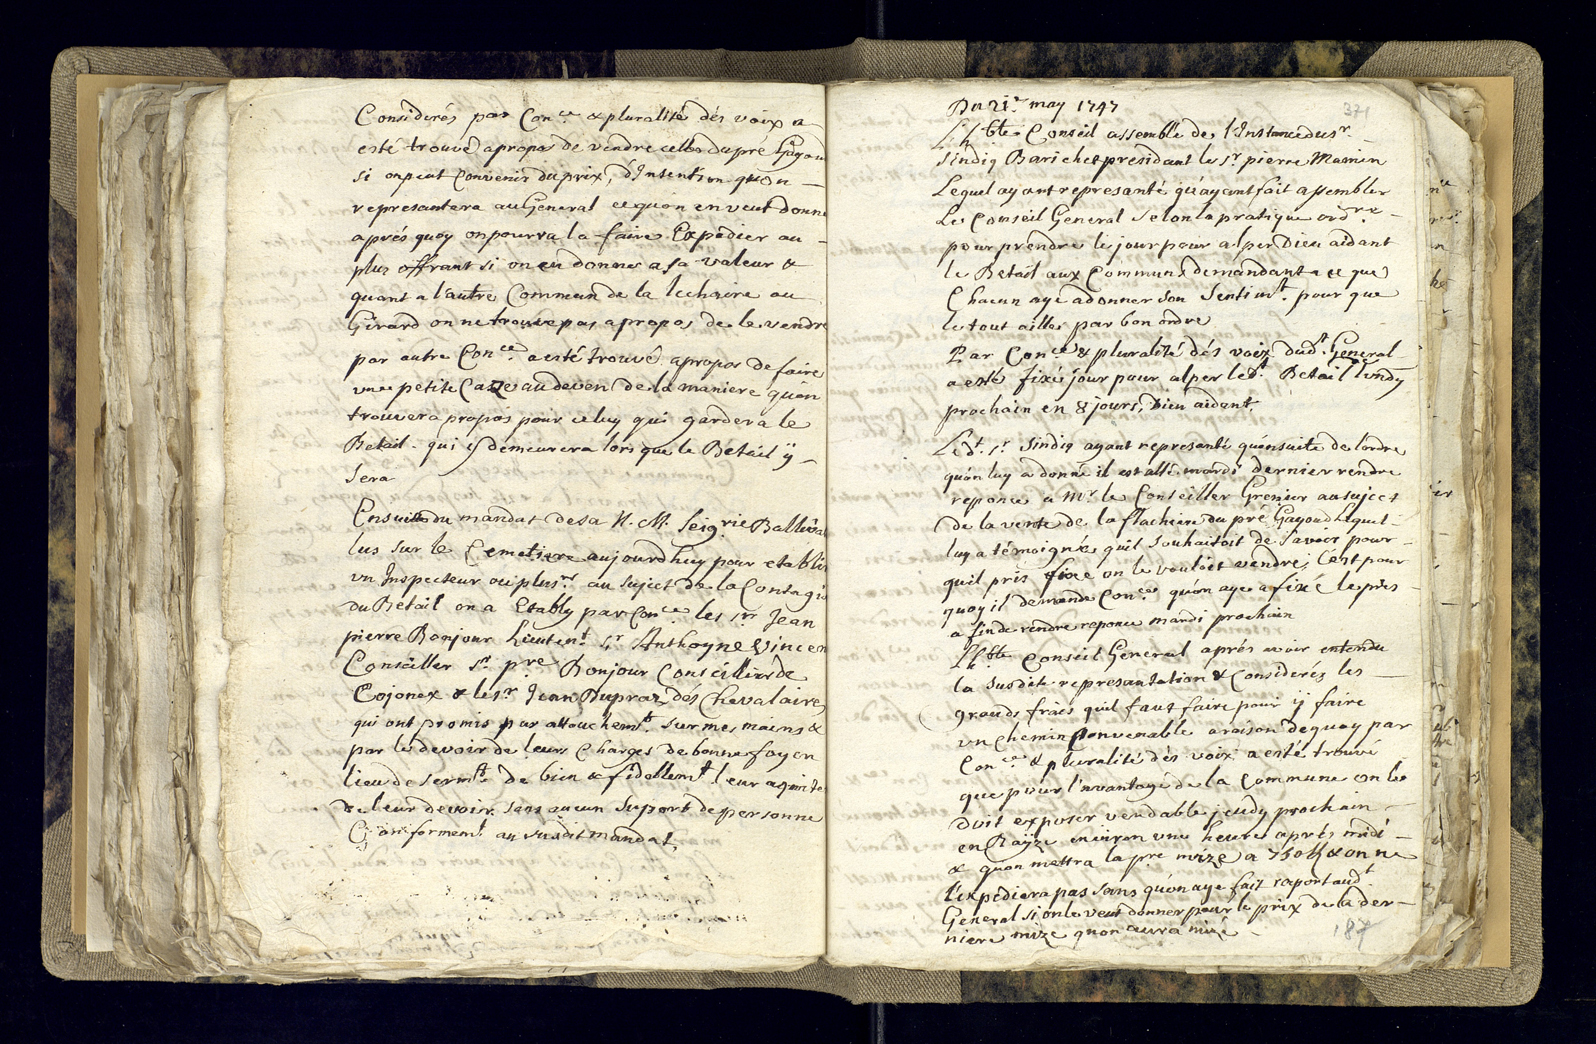 Considerés par Con.ce & pluralité dés voix a
esté trouvé apropos de vendre celler du pré Gayoud
si on peut Convenir du prix, d'Intention qu'on –
representera au General ce quon en veut donner
aprés quoy on pourra la faire Expedier au –
plus offrant si on en donne a sa valeur &
quant a l'autre Commun de la lechaire au
Girard on ne trouve pas apropos de le vendre
par autre Con.ce a esté trouvé apropos de faire
une petite Caze au deven de la maniere quon
trouvera propos pour celuy qui gardera le
Betail qui y demeurera lors que le Betail ÿ –
sera
Ensuitte du mandat de sa N. M. Seig.rie Ballivale
lus sur le Cemetiere aujourdhuy pour etablir
un Inspecteur ou plus.rs au suject de la Contagion
du Betail on a Etably par Con.ce les s.rs Jean
pierre Bonjour Lieuten.t s.r Anthoyne Vincent
Conseiller s.r p.re Bonjour Conseillier de
Cojonex & le s.r Jean Dupraz dés Chevalaires
qui ont promis par attouchem.t sur mes mains &
par le devoir de leurs Charges de bonne foy en
lieu de serm.t de bien & fidellem.t leur aquiter
de leur devoir sans aucun suport de personne
Conformem.t au susdit mandat,
Du 21.e may 1747
371
L'h.ble Conseil assemble de l'Instance du s.r
Sindiq Barichet presidant le s.r pierre Mamin
Lequel ayant representé qu'ayant fait assembler
Le Conseil General selon la pratique ord.re –
pour prendre le jour pour alper Dieu aidant
le Betail aux Communs demandant a ce que
Chacun aye a donner son sentim.t pour que
le tout ailles par bon ordre
Par Con.ce & pluralité dés voix dud.t General
a esté fixé jour pour alper led.t Betail lundy
prochain en 8 jours, Dieu aidant,
Led.t s.r Sindiq ayant representé qu'ensuite de l'ordre
qu'on luy a donné il est allé mardi dernier rendre
reponce a M.r le Conseiller Grenier au suject
de la vente de la flachiere du pré Gayoud lequel –
luy a témoigné qu'il souhaitoit de savoir pour –
quel pris fixe on le vouloit vendre, C'est pour
quoy il demande Con.ce qu'on aye a fixé le pris –
a fin de rendre reponce mardi prochain
L'h.ble Conseil General aprés avoir entendu
la susdite representation & Considerés les –
grands frais quil faut faire pour ÿ faire
un chemin Convenable a raison dequoy par
Con.ce & pluralité dés voix a esté trouvé
que pour l'avantage de la Commune on le
doit exposer vendable jeudy prochain –
en Raÿze environ une heure aprés midi –
& quon mettra la p.re mize a 750 ff & on ne
l'expediera pas sans qu'on aye fait raport aud.t
General si on le veut donner pour le prix de la der –
niere mize quon aura mizé –
187